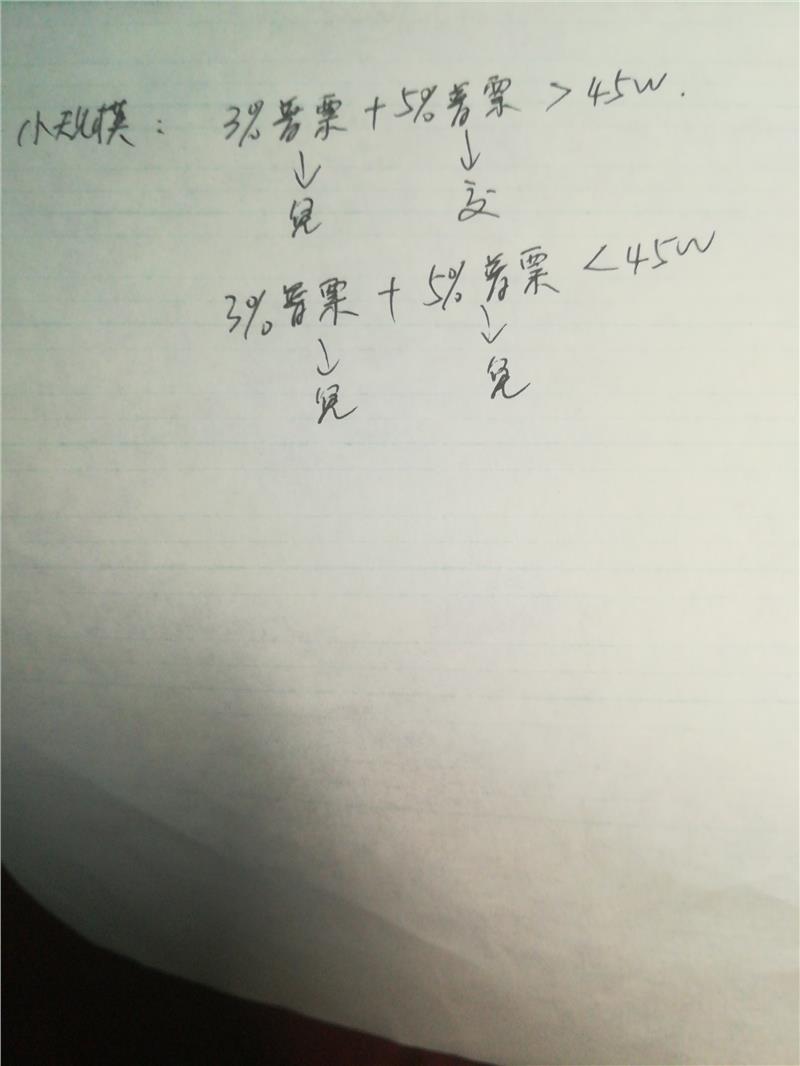 小规模： 3%普票 + 5%普票 > 45W.
↓ ↓
免 交
3%普票 + 5%普票 < 45W
↓ ↓
免 免